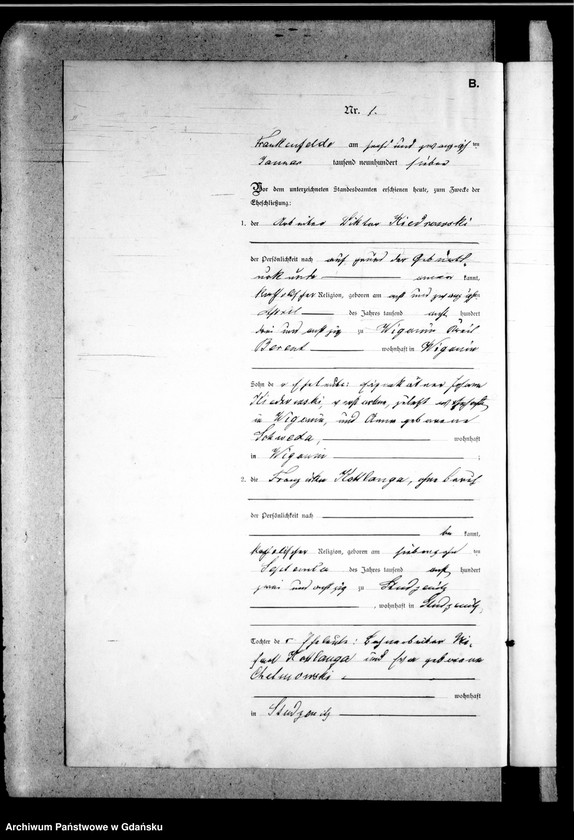 B.
Nr. 1.
Frankenfelde am sechs und zwanzigsten
Januar tausend neunhundert sieben
Vor dem unterzeichneten Standesbeamten erschienen heute, zum Zwecke der
Eheschließung:
1. der Arbeiter Viktor Kiedrowski
der Persönlichkeit nach auf Grund der Geburts-
urkunde anerkannt,
katholischer Religion, geboren am acht und zwanzigsten
April des Jahres tausend acht hundert
drei und achtzig zu Wigonin Kreis
Berent wohnhaft in Wigonin
Sohn der Eheleute: Eigenkätner Johann
Kiedrowski, verstorben, zuletzt wohnhaft
in Wigonin, und Anna geborene
Schweda, wohnhaft
in Wigonin ;
2. die Franziska Kotlanga, ohne Beruf
der Persönlichkeit nach
bekannt,
katholischer Religion, geboren am siebenzehnten
September des Jahres tausend acht hundert
zwei und achtzig zu Studzenitz
, wohnhaft in Studzenitz
Tochter der Eheleute: Bahnarbeiter
Kotlanga und geborene
Chelmowski
wohnhaft
in Studzenitz
Archiwum Państwowe w Gdańsku